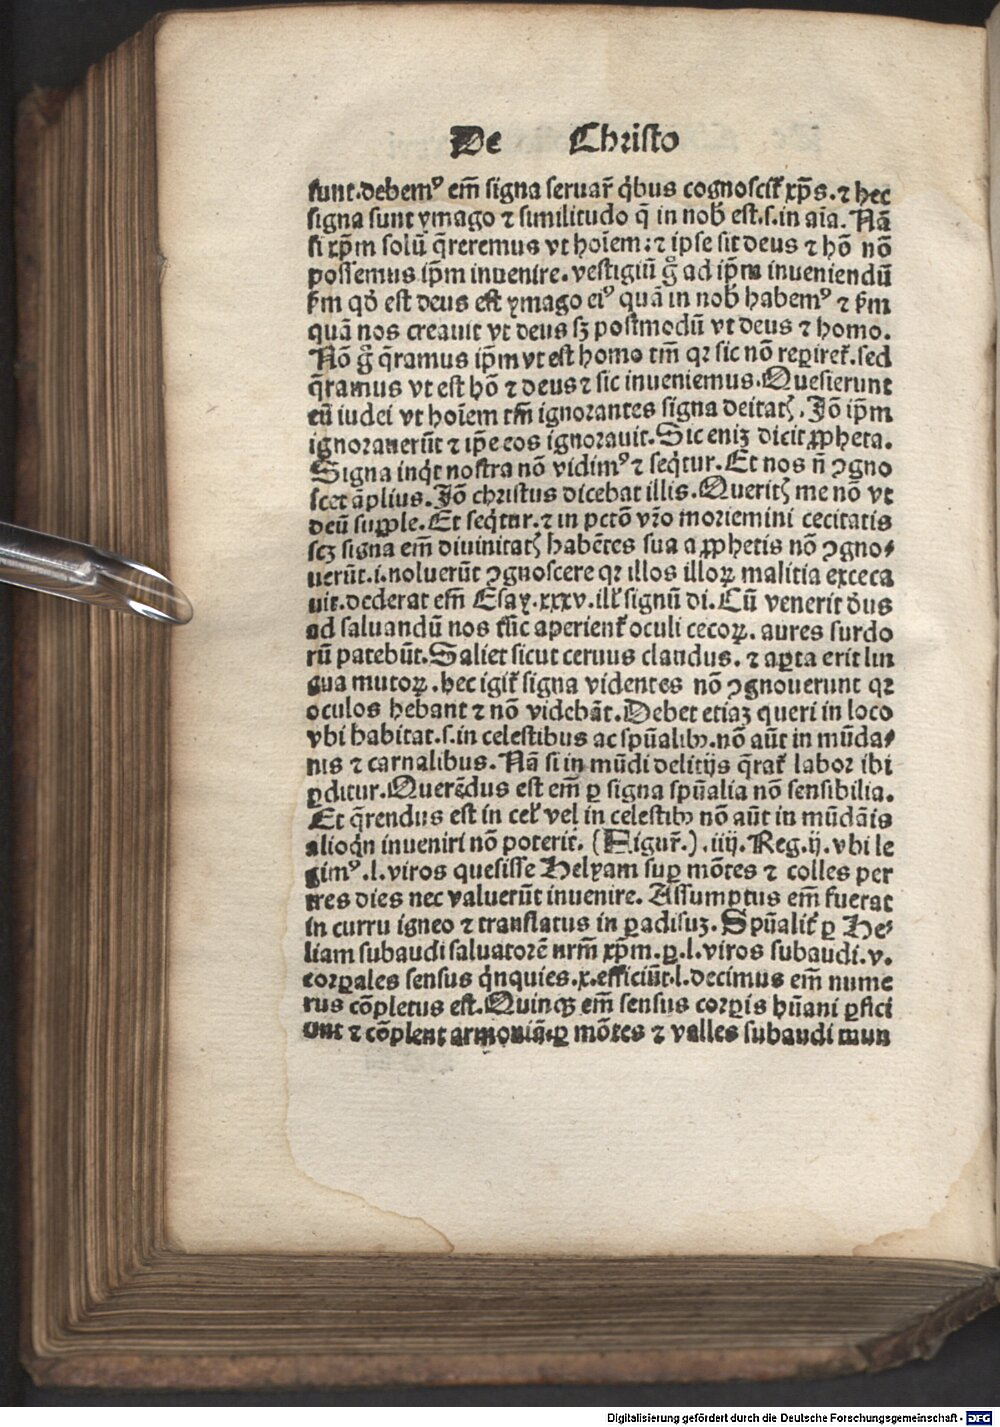 De Christo
sunt.debemꝰ em̄ signa seruar̄ q̇bus cognoscit᷑ xp̄s.⁊ hec
signa sunt ymago ⁊ similitudo q̄ in nob̄ est.s.in aīa. Nā
si xp̄m solū q̄reremus vt hoīem:⁊ ipse sit deus ⁊ hō nō
possemus ip̄m inuenire.vestigiū gͦ ad ip̄m inueniendū
ẜm qď est deus est ymago eiꝰ quā in nob̄ habemꝰ ⁊ ẜm
quā nos creauit vt deus sꝫ postmodū vt deus ⁊ homo.
Nō gͦ q̄ramus ip̄m vt est homo tm̄ qꝛ sic nō reꝑiret᷑.sed
q̄ramus vt est hō ⁊ deus ⁊ sic inueniemus.Quesierunt
eū iudei vt hoīem tm̄ ignorantes signa deitatꝭ. Jō ip̄m
ignorauerūt ⁊ ip̄e eos ignorauit.Sic eniꝫ dicit ꝓpheta.
Signa inq̇t nostra nō vidimꝰ ⁊ seq̇tur.Et nos n̄ ꝯgno
scet āplius.Jō christus dicebat illis.Queritꝭ me nō vt
deū suꝓple.Et seq̇tur.⁊ in pctō vr̄o moriemini cecitatis
scꝫ signa em̄ diuinitatꝭ habētes sua a ꝓphetis nō ꝯgno⸗
uerūt.i.noluerūt ꝯgnoscere qꝛ illos illoꝝ malitia exceca
uit.dederat em̄ Esay.xxxv.ill᷑ signū di.Cū venerit dn̄s
ad saluandū nos tūc aperient᷑ oculi cecoꝝ. aures surdo
rū patebūt.Saliet sicut ceruus claudus. ⁊ aꝑta erit lin
gua mutoꝝ.hec igit᷑ signa videntes nō ꝯgnouerunt qꝛ
oculos hebant ⁊ nō videbāt.Debet etiaꝫ queri in loco
vbi habitat.s.in celestibus ac spūalibꝰ.nō aūt in mūda⸗
nis ⁊ carnalibus.Nā si in mūdi delitijs q̄rat᷑ labor ibi
ꝑditur.Querēdus est em̄ ꝑ signa spūalia nō sensibilia.
Et q̄rendus est in cel᷑ vel in celestibꝰ nō aūt in mūdāis
alioq̇n inueniri nō poterit. (Figur̄.).iiij.Reg.ij.vbi le
gimꝰ.l.viros quesisse Helyam suꝑ mōtes ⁊ colles per
tres dies nec valuerūt inuenire. Assumptus em̄ fuerat
in curru igneo ⁊ translatus in ꝑadisuꝫ. Spūalit᷑ ꝑ He⸗
liam subaudi saluatorē nr̄m xp̄m.ꝑ.l.viros subaudi.v.
corꝑales sensus q̇nquies.x.efficiūt.l.decimus em̄ nume
rus cōpletus est.Quinqꝫ em̄ sensus corꝑis hūani ꝑfici
unt ⁊ cōplent armoniā.ꝑ mōtes ⁊ valles subaudi mun
Digitalisierung gefördert durch die Deutsche Forschungsgemeinschaft - DFG